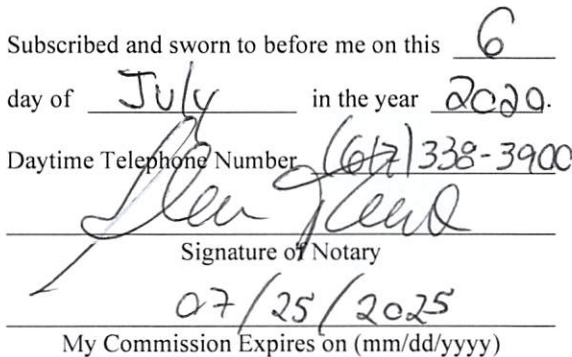 Subscribed and sworn to before me on this 6
day of July in the year 2020.
Daytime Telephone Number (617) 338-3900
Signature of Notary
07/25/2025
My Commission Expires on (mm/dd/yyyy)